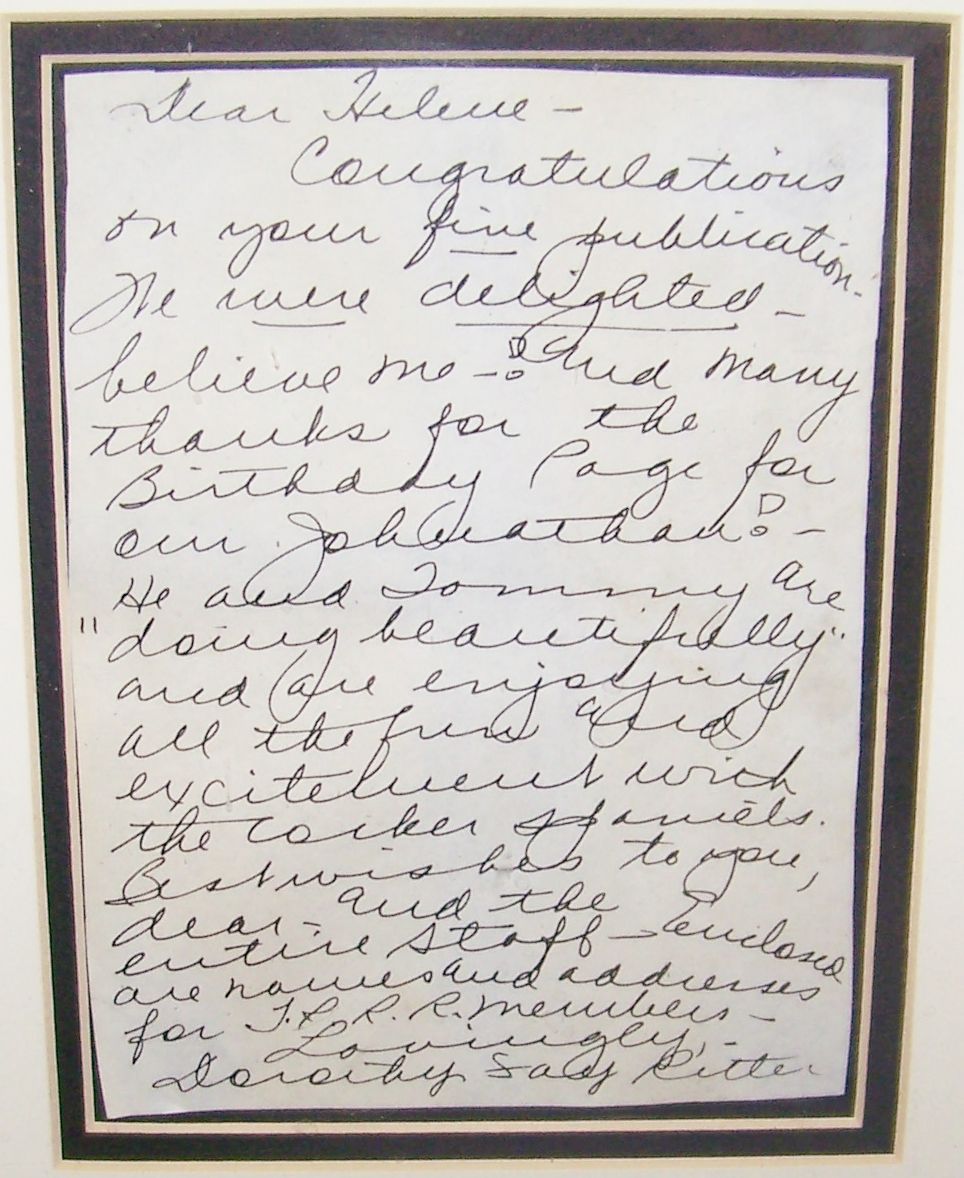 Dear Helene -
Congratulations
on your fine publication.
We were delighted -
believe me -! And many
thanks for the
Birthday Page for
our Johnathan! -
He and Tommy are
"doing beautifully"
and are enjoying
all the fun and
excitement with
the cocker spaniels.
Best wishes to you,
dear - and the
entire staff - Enclosed
are names and addresses
for T. R. R. members -
Lovingly, -
Dorothy Fay Ritter